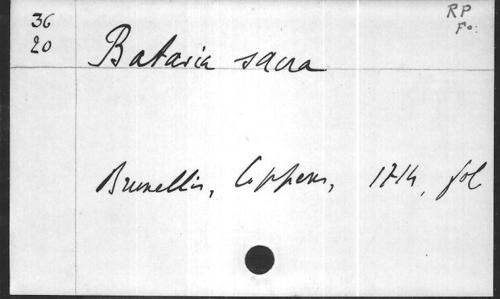 36
20
RP
Fo:
Batavia sacra
Bruxellis, Coppens, 1714, fol